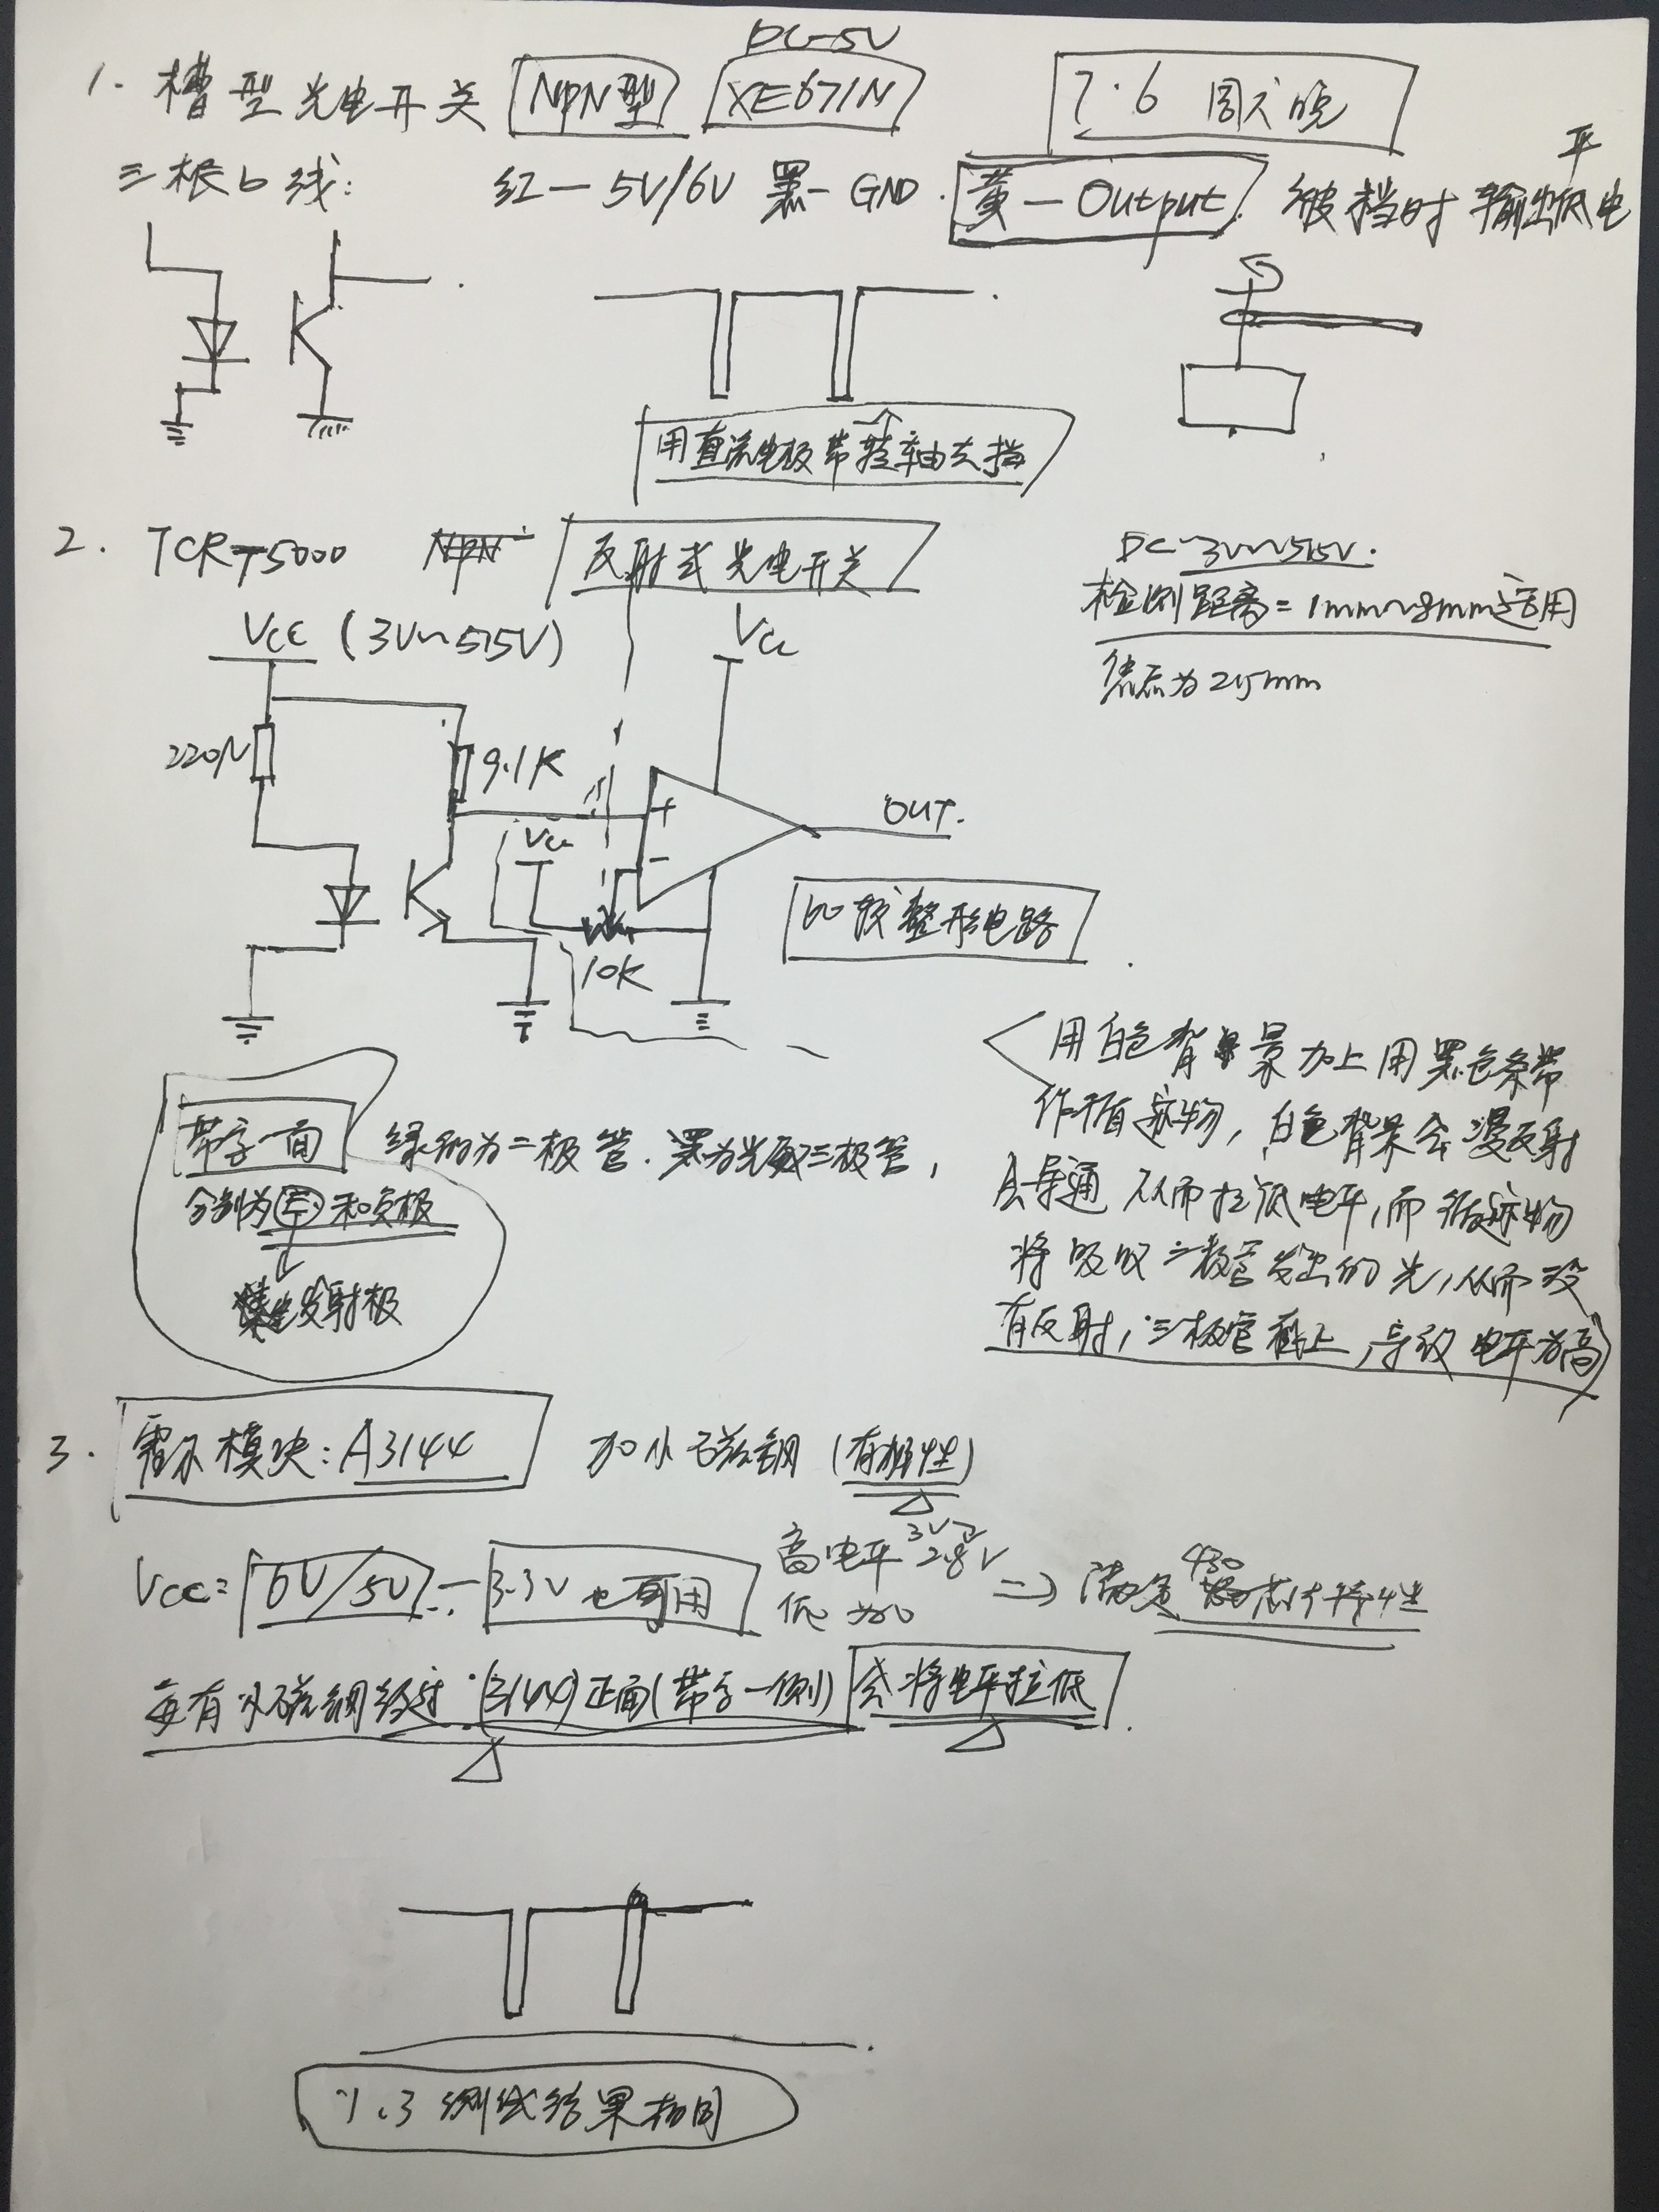 DC-5V
1. 槽型光电开关 NPN型 XE671N 7.6 周六晚
三根线: 红—5V/6V 黑—GND. 黄—Output. 被挡时输出低电平
用直流电极带转轴去挡
2. TCRT5000 NPN 反射式光电开关
DC-3V~5.5V.
检测距离=1mm~8mm适用
焦点为2.5mm
VCC (3V~5.5V) VCC
220Ω 9.1K
+ OUT.
VCC −
比较整形电路
10K
用白色背景加上用黑色条带
作循迹物,白色背景会漫反射
会导通 从而拉低电平,而循迹物
将吸收二极管发出的光,从而没
有反射,三极管截止,导致电平为高
带字一面 绿的为二极管.黑为光敏三极管,
分别为正和负极
发射极
3. 霍尔模块:A3144 加小磁钢(有极性)
VCC= 6V/5V — 3.3V也可用 高电平 3V 2.8V 低为0 ⇒ 满足430芯片特性
每有小磁钢经过(3144)正面(带字一侧) 会将电平拉低.
1.3 测试结果相同